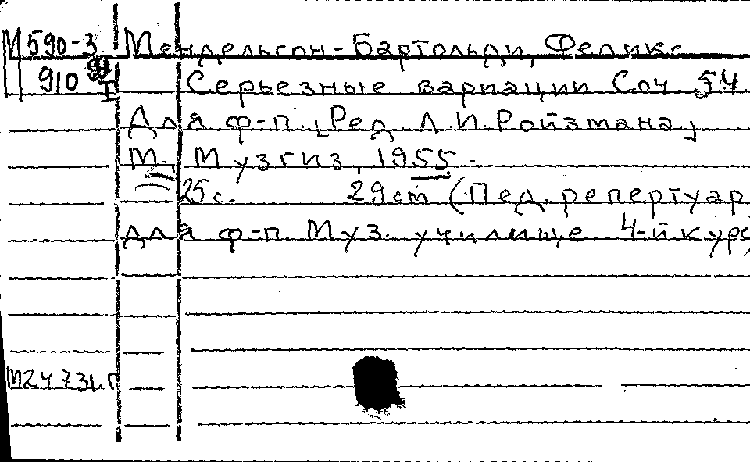 М 590-3 Мендельсон-Бартольди, Феликс
910 Серьезные вариации Соч. 54
Для ф-п. [Ред. Л.И. Ройзмана]
М., Музгиз, 1955.-
25с. 29см (Пед. репертуар
для ф-п. Муз. училище 4-й курс